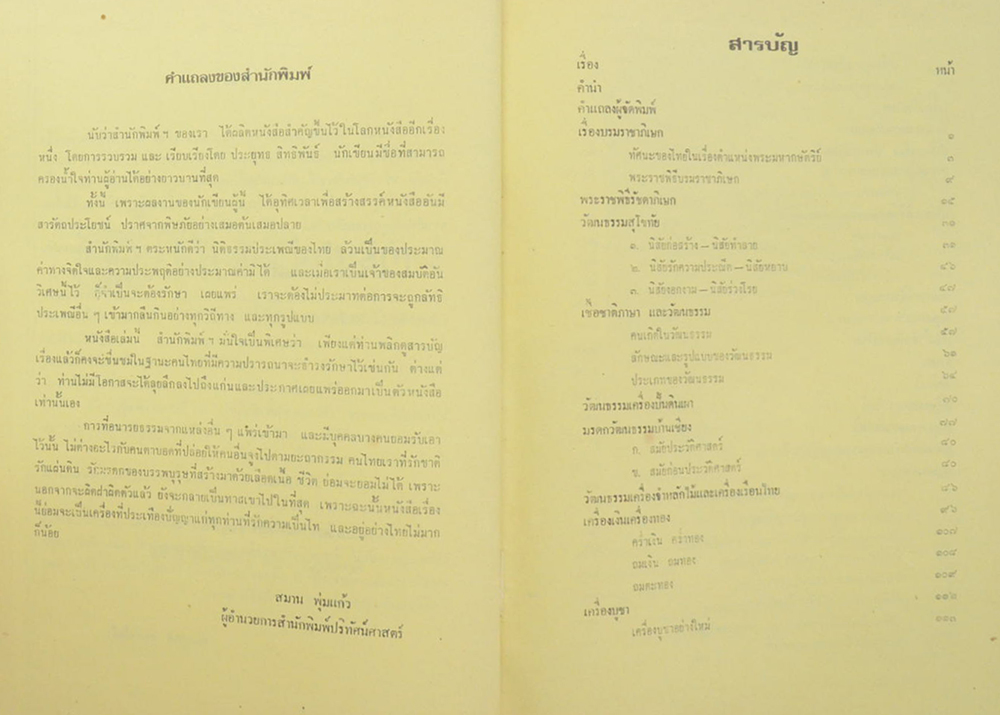 คำแถลงของสำนักพิมพ์
นับว่าสำนักพิมพ์ ฯ ของเรา ได้ผลิตหนังสือสำคัญขึ้นไว้ในโลกหนังสืออีกเรื่อง
หนึ่ง โดยการรวบรวม และ เรียบเรียงโดย ประยุทธ สิทธิพันธ์ นักเขียนมีชื่อที่สามารถ
ครองน้ำใจท่านผู้อ่านได้อย่างยาวนานที่สุด
ทั้งนี้ เพราะผลงานของนักเขียนผู้นี้ ได้อุทิศเวลาเพื่อสร้างสรรค์หนังสืออันมี
สารัตถประโยชน์ ปราศจากพิษภัยอย่างเสมอต้นเสมอปลาย
สำนักพิมพ์ ฯ ตระหนักดีว่า นิติธรรมประเพณีของไทย ล้วนเป็นของประมาณ
ค่าทางจิตใจและความประพฤติอย่างประมาณค่ามิได้ และเมื่อเราเป็นเจ้าของสมบัติอัน
วิเศษนี้ไว้ ก็จำเป็นจะต้องรักษา เผยแพร่ เราจะต้องไม่ประมาทต่อการจะถูกลัทธิ
ประเพณีอื่น ๆ เข้ามากลืนกินอย่างทุกวิถีทาง และทุกรูปแบบ
หนังสือเล่มนี้ สำนักพิมพ์ ฯ มั่นใจเป็นพิเศษว่า เพียงแต่ท่านพลิกดูสารบัญ
เรื่องแล้วก็คงจะชื่นชมในฐานะคนไทยที่มีความปรารถนาจะธำรงรักษาไว้เช่นกัน ต่างแต่
ว่า ท่านไม่มีโอกาสจะได้ลุยลึกลงไปถึงแก่นและประกาศเผยแพร่ออกมาเป็นตัวหนังสือ
เท่านั้นเอง
การที่อนารยธรรมจากแหล่งอื่น ๆ แพร่เข้ามา และมีบุคคลบางคนยอมรับเอา
ไว้นั้น ไม่ต่างอะไรกับคนตาบอดที่ปล่อยให้คนอื่นจูงไปตามยะถากรรม คนไทยเราที่รักชาติ
รักแผ่นดิน รักมรดกของบรรพบุรุษที่สร้างมาด้วยเลือดเนื้อ ชีวิต ย่อมจะยอมไม่ได้ เพราะ
นอกจากจะผิดฝาผิดตัวแล้ว ยังจะกลายเป็นทาสเขาไปในที่สุด เพราะฉะนั้นหนังสือเรื่อง
นี้ย่อมจะเป็นเครื่องที่ประเทืองปัญญาแก่ทุกท่านที่รักความเป็นไท และอยู่อย่างไทยไม่มาก
ก็น้อย
สมาน พุ่มแก้ว
ผู้อำนวยการสำนักพิมพ์ปริทัศน์ศาสตร์
สารบัญ
เรื่อง หน้า
คำนำ
คำแถลงผู้จัดพิมพ์
เรื่องบรมราชาภิเษก ๑
ทัศนะของไทยในเรื่องตำแหน่งพระมหากษัตริย์ ๓
พระราชพิธีบรมราชาภิเษก ๙
พระราชพิธีรัชดาภิเษก ๑๕
วัฒนธรรมสุโขทัย ๓๐
๑. นิสัยก่อสร้าง – นิสัยทำลาย ๓๑
๒. นิสัยรักความประณีต – นิสัยหยาบ ๔๖
๓. นิสัยงอกงาม – นิสัยร่วงโรย ๔๗
เชื้อชาติภาษา และวัฒนธรรม ๕๗
คนเกิดในวัฒนธรรม ๕๗
ลักษณะและรูปแบบของวัฒนธรรม ๖๑
ประเภทของวัฒนธรรม ๖๔
วัฒนธรรมเครื่องปั้นดินเผา ๗๐
มรดกวัฒนธรรมบ้านเชียง ๗๗
ก. สมัยประวัติศาสตร์ ๘๐
ข. สมัยก่อนประวัติศาสตร์ ๘๐
วัฒนธรรมเครื่องจำหลักไม้และเครื่องเรือนไทย ๘๖
เครื่องเงินเครื่องทอง ๙๖
คร่ำเงิน คร่ำทอง ๑๐๗
ถมเงิน ถมทอง ๑๐๘
ถมตะทอง ๑๐๙
เครื่องบูชา ๑๑๖
เครื่องบูชาอย่างใหม่